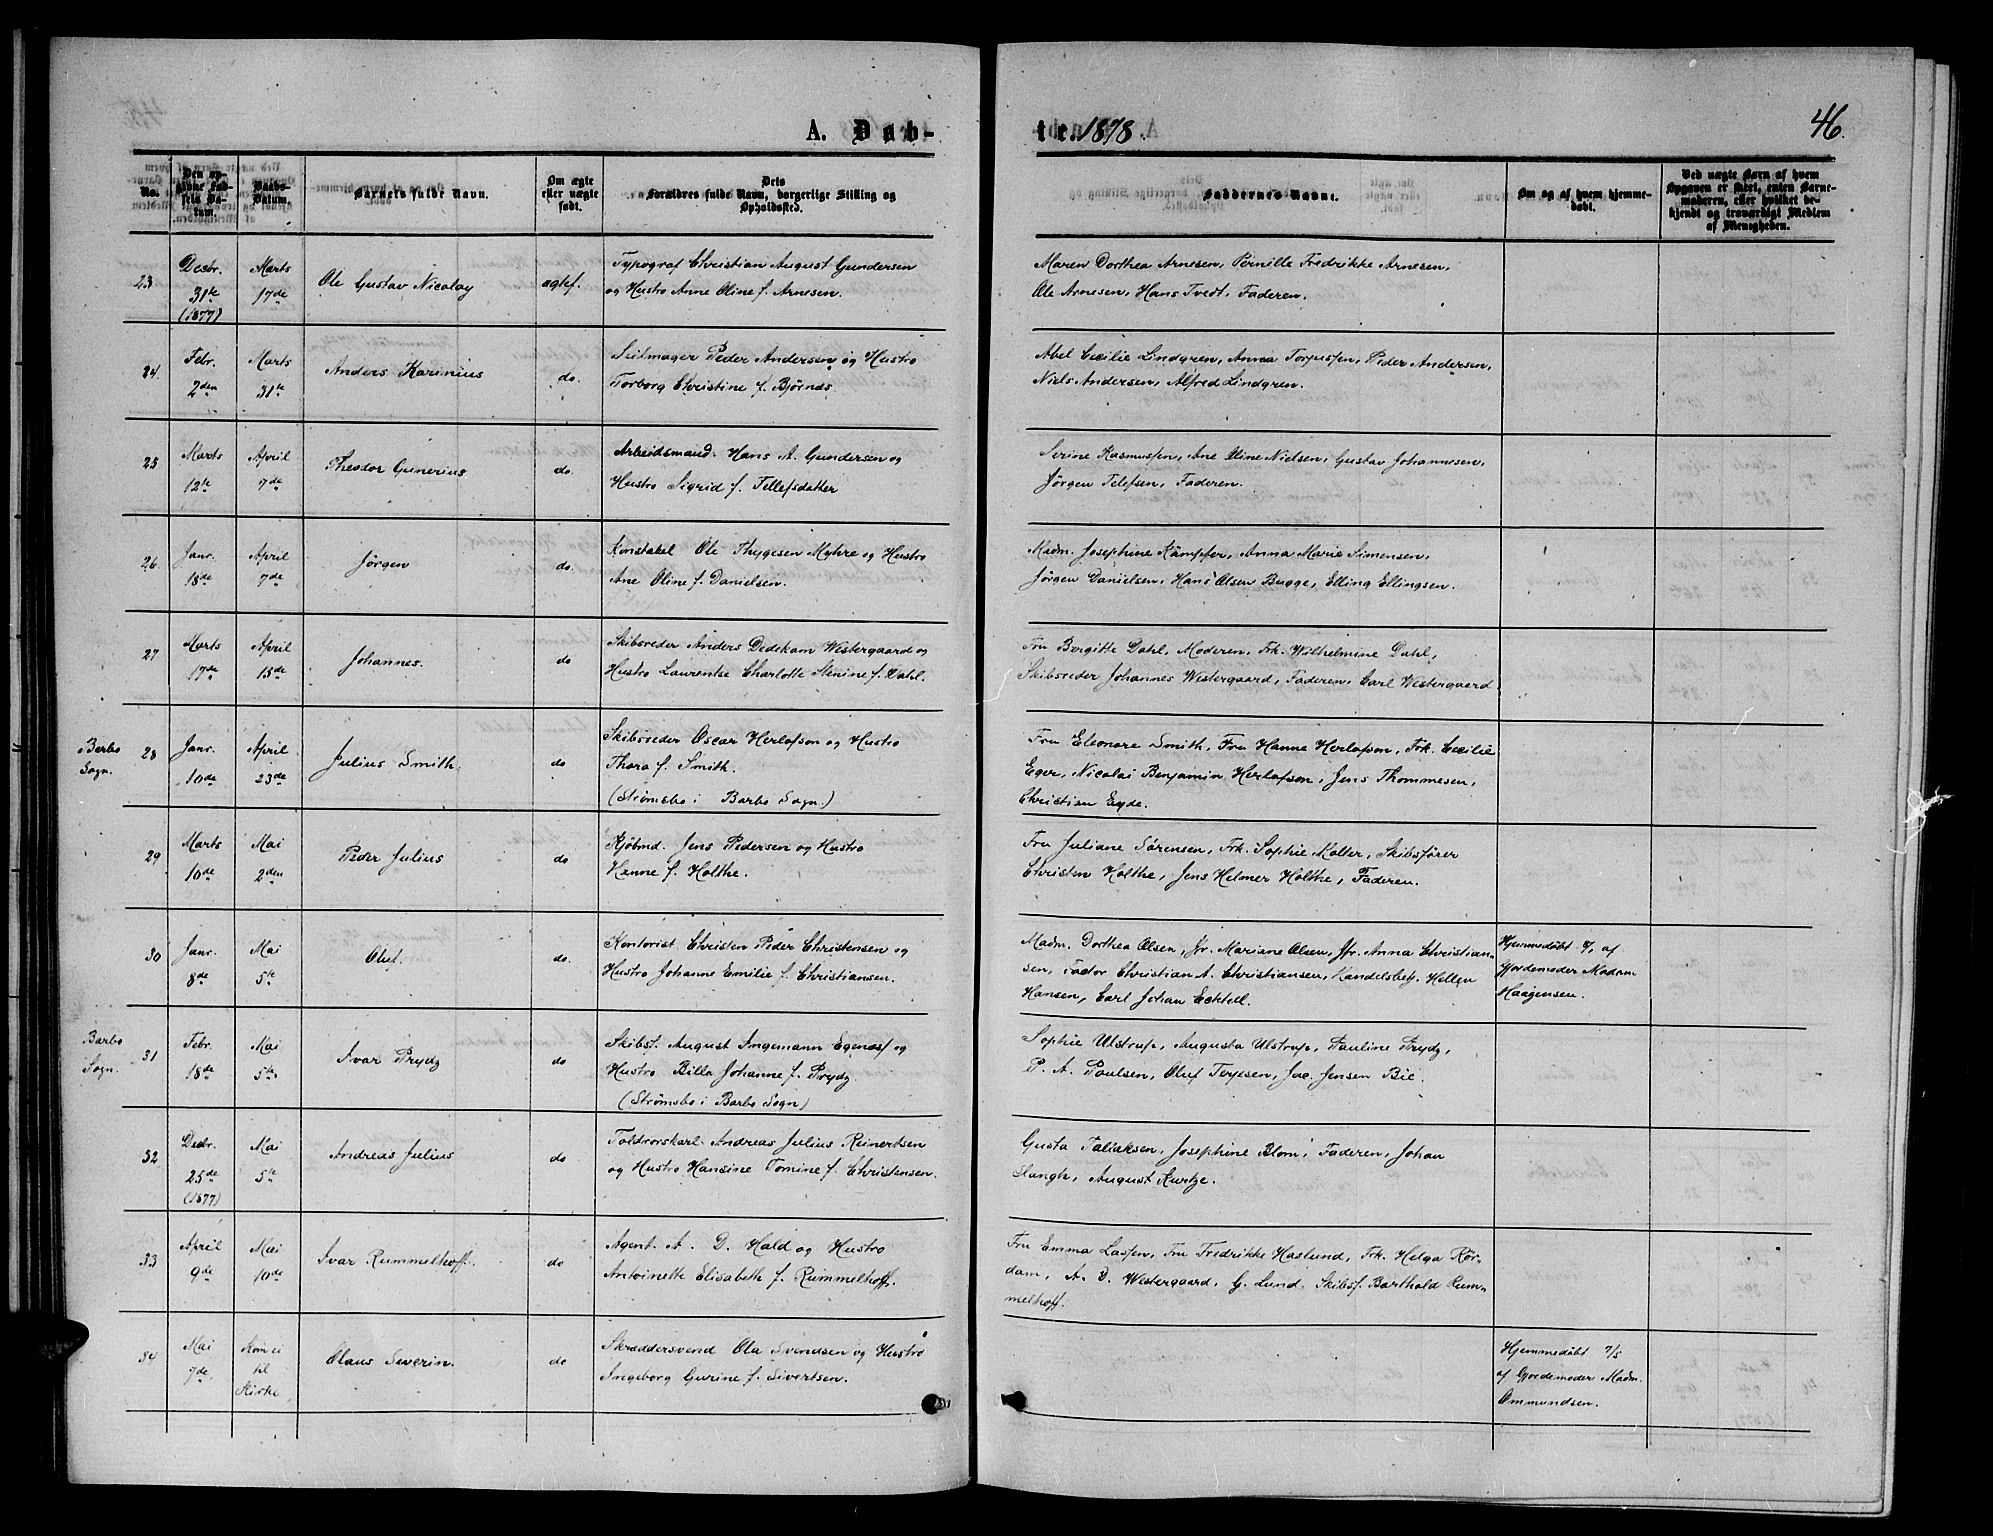 A. Døb-
te. 1878.
46.
No.
Den op-
givne Fød-
sels Da-
tum.
Daabs-
Datum.
Barnets fulde Navn.
Om ægte
eller uægte
født.
Dets
Forældres fulde Navn, borgerlige Stilling og
Opholdssted.
Faddernes Navne.
Om og af hvem hjemme-
døbt.
Ved uægte Børn af hvem
Opgaven er skeet, enten Barne-
moderen, eller hvilket be-
kjendt og troværdigt Medlem
af Menigheden.
23
Decbr.
31te
(1877)
Marts
17de
Ole Gustav Nicolay
ægtef.
Typograf Christian August Gundersen
og Hustro Anne Oline f. Arnesen.
Maren Dorthea Arnesen, Pernille Fredrikke Arnesen,
Ole Arnesen, Hans Tvedt, Faderen.
24.
Febr.
2den
Marts
31te
Anders Karinius
do.
Seilmager Peder Andersen og Hustro
Torborg Christine f. Bjørnes.
Abel Cecilie Lindgren, Anna Torjussen, Peder Andersen,
Niels Andersen, Alfred Lindgren.
25
Marts
12te
April
7de
Theodor Gunerius
do.
Arbeidsmand. Hans A. Gundersen og
Hustro Sigrid f. Tellefsdatter
Serine Rasmussen, Ane Oline Nielsen, Gustav Johannesen,
Jørgen Telefsen, Faderen.
26.
Janr.
18de
April
7de
Jørgen
do.
Konstabel Ole Thygesen Myhre og Hustro
Ane Oline f. Danielsen.
Madm. Josephine Kämpfer, Anna Marie Simensen,
Jørgen Danielsen, Hans Olsen Bugge, Elling Ellingsen.
27
Marts
17de
April
15de
Johannes.
do
Skibsreder Anders Dedekam Westergaard og
Hustro Laurentse Charlotte Stenine f. Dahl.
Fru Birgitte Dahl, Moderen, Frk. Wilhelmine Dahl,
Skibsreder Johannes Westergaard, Faderen, Carl Westergaard.
Barbo
Sogn.
28
Janr.
10de
April
23de
Julius Smith.
do
Skibsreder Oscar Herlofson og Hustro
Thora f. Smith.
(Strømsbo i Barbo Sogn.)
Fru Eleonore Smith, Fru Hanne Herlofson, Frk. Cecilie
Eger, Nicolai Benjamin Herlofson, Jens Thommesen,
Christian Eyde.
29
Marts
10de
Mai
2den
Peder Julius
do
Kjøbmd. Jens Pedersen og Hustro
Hanne f. Holthe.
Fru Juliane Sørensen, Frk. Sophie Kolter, Skibsfører
Christen Holthe, Jens Helmer Holthe, Faderen.
30
Janr.
8de
Mai
5te
Oluf.
do.
Kontorist Christen Peder Christensen og
Hustro Johanne Emilie f. Christiansen.
Madm. Dorthea Olsen, Jfr. Mariane Olsen, Jfr. Anna Christian-
sen, Factor Christian A. Christiansen, Handelsbetj. Hellen
Hansen, Carl Johan Ecktell.
Hjemmedøbt af
Gjordemoder Madam
Haagensen.
Barbo
Sogn.
31
Febr.
18de
Mai
5te
Ivar Prydz
do
Skibsf. August Ingemann Egenæs og
Hustro Billa Johanne f. Prydz.
(Strømsbo i Barbo Sogn)
Sophie Ulstrup, Augusta Ulstrup, Pauline Prydz,
P. A. Poulsen, Oluf Terjesen, Jac. Jensen Bie.
32
Decbr.
25de
(1877)
Mai
5te
Andreas Julius
do
Toldrorskarl Andreas Julius Reinertsen
og Hustro Hansine Tomine f. Christensen.
Gusta Taliaksen, Josephine Blom, Faderen, Johan
Slangh, August Kurtze.
33
April
9de
Mai
10de
Ivar Rummelhoff.
do
Agent. A. D. Hald og Hustro
Antoinette Elisabeth f. Rummelhoff.
Fru Emma Lassen, Fru Fredrikke Haslund, Frk. Helga Rør-
dam, A. D. Westergaard, G. Lund. Skibsf. Barthold Rum-
melhoff.
34
Mai
7de
Kom ei
til
Kirke
Olaus Severin.
do
Skræddersvend Ola Svendsen og Hustro
Ingeborg Gurine f. Sivertsen.
Hjemmedøbt 7/5
af Gjordemoder Madm.
Ommundsen.